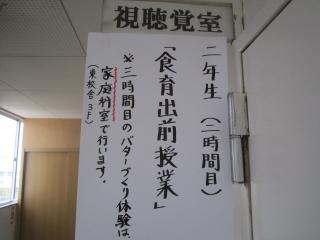 視聴覚室
二年生（二時間目）
「食育出前授業」
※三時間目のバターづくり体験は、
家庭科室で行います.
（東校舎3F）